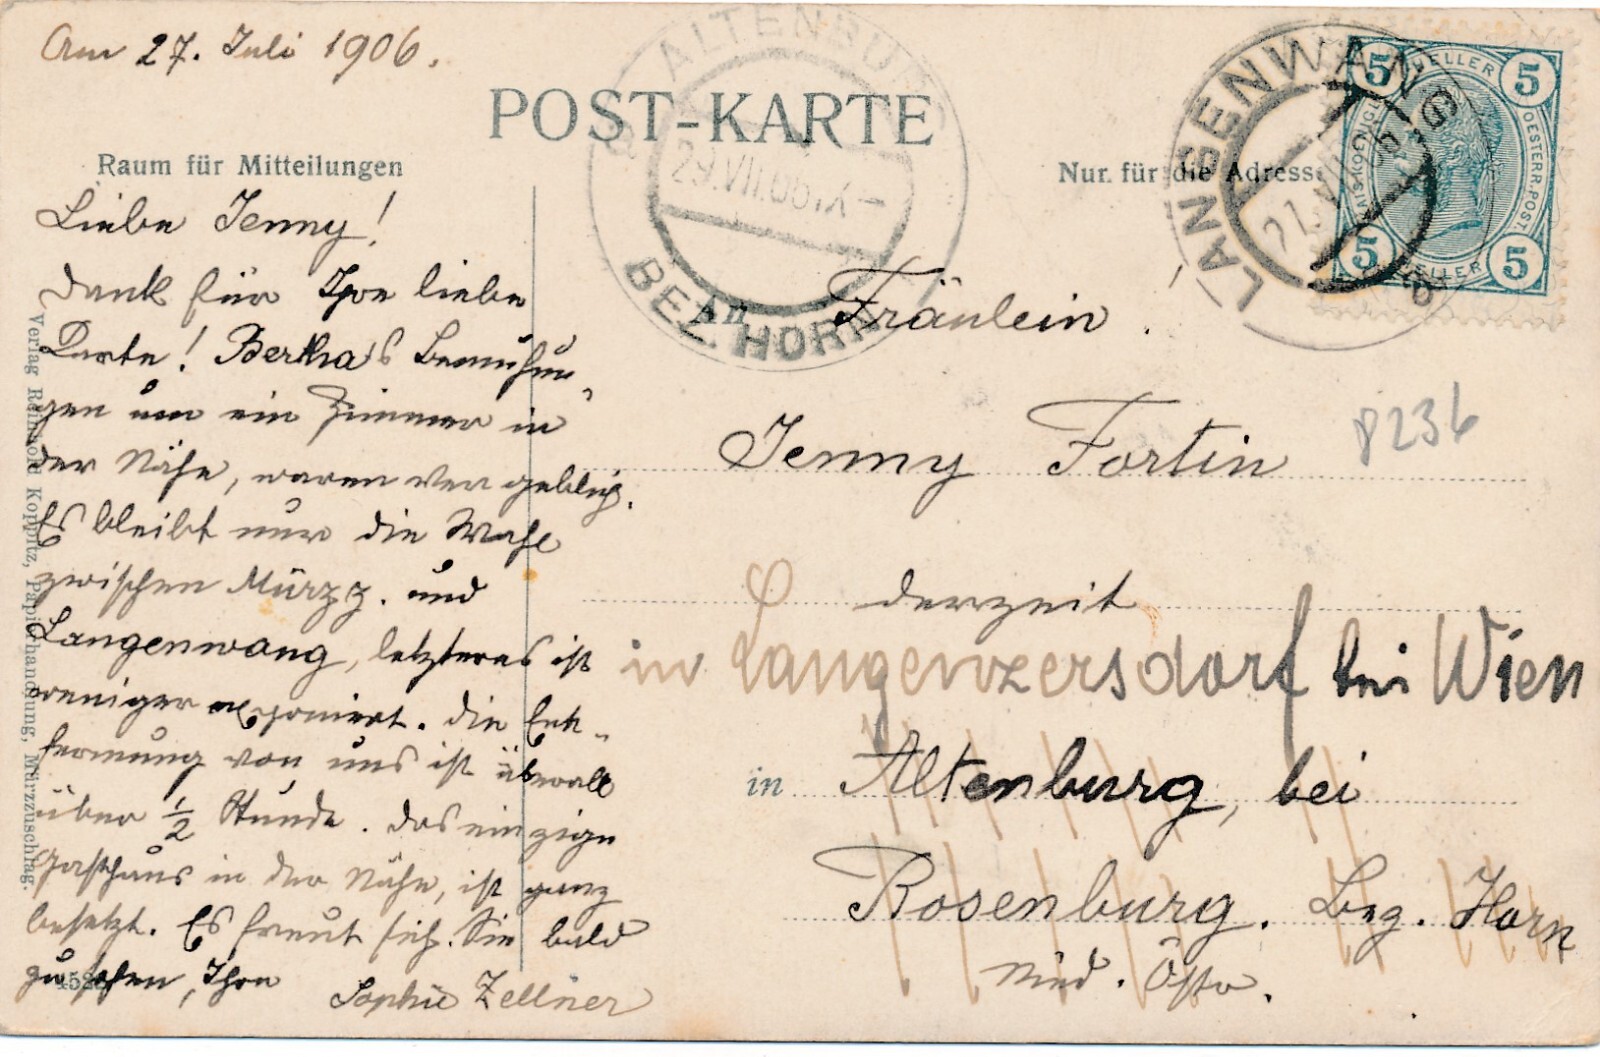 Am 27. Juli 1906.
POST-KARTE
ALTENBURG
29.VII.06
BEZ. HORN
LANGENWANG
5 HELLER 5
OESTERR. POST
5 HELLER 5
Raum für Mitteilungen
Nur für die Adresse
Liebe Jenny!
Dank für Ihre liebe
Karte! Bertha's Bemühun„
gen um ein Zimmer in
der Nähe, waren vergeblich.
Es bleibt nur die Wahl
zwischen Mürzz. und
Langenwang, letzteres ist
weniger exponiert. Die Ent„
fernung von uns ist überall
über ½ Stunde. Das einzige
Gasthaus in der Nähe, ist ganz
besetzt. Es freut sich Sie bald
zu sehen, Ihre
Sophie Zellner
An Fräulein!
Jenny Fortin
8236
derzeit
in Langenzersdorf bei Wien
in Altenburg, bei
Rosenburg. Bez. Horn
Nied. Östr.
Verlag Reinhold Koppitz, Papierhandlung, Mürzzuschlag.